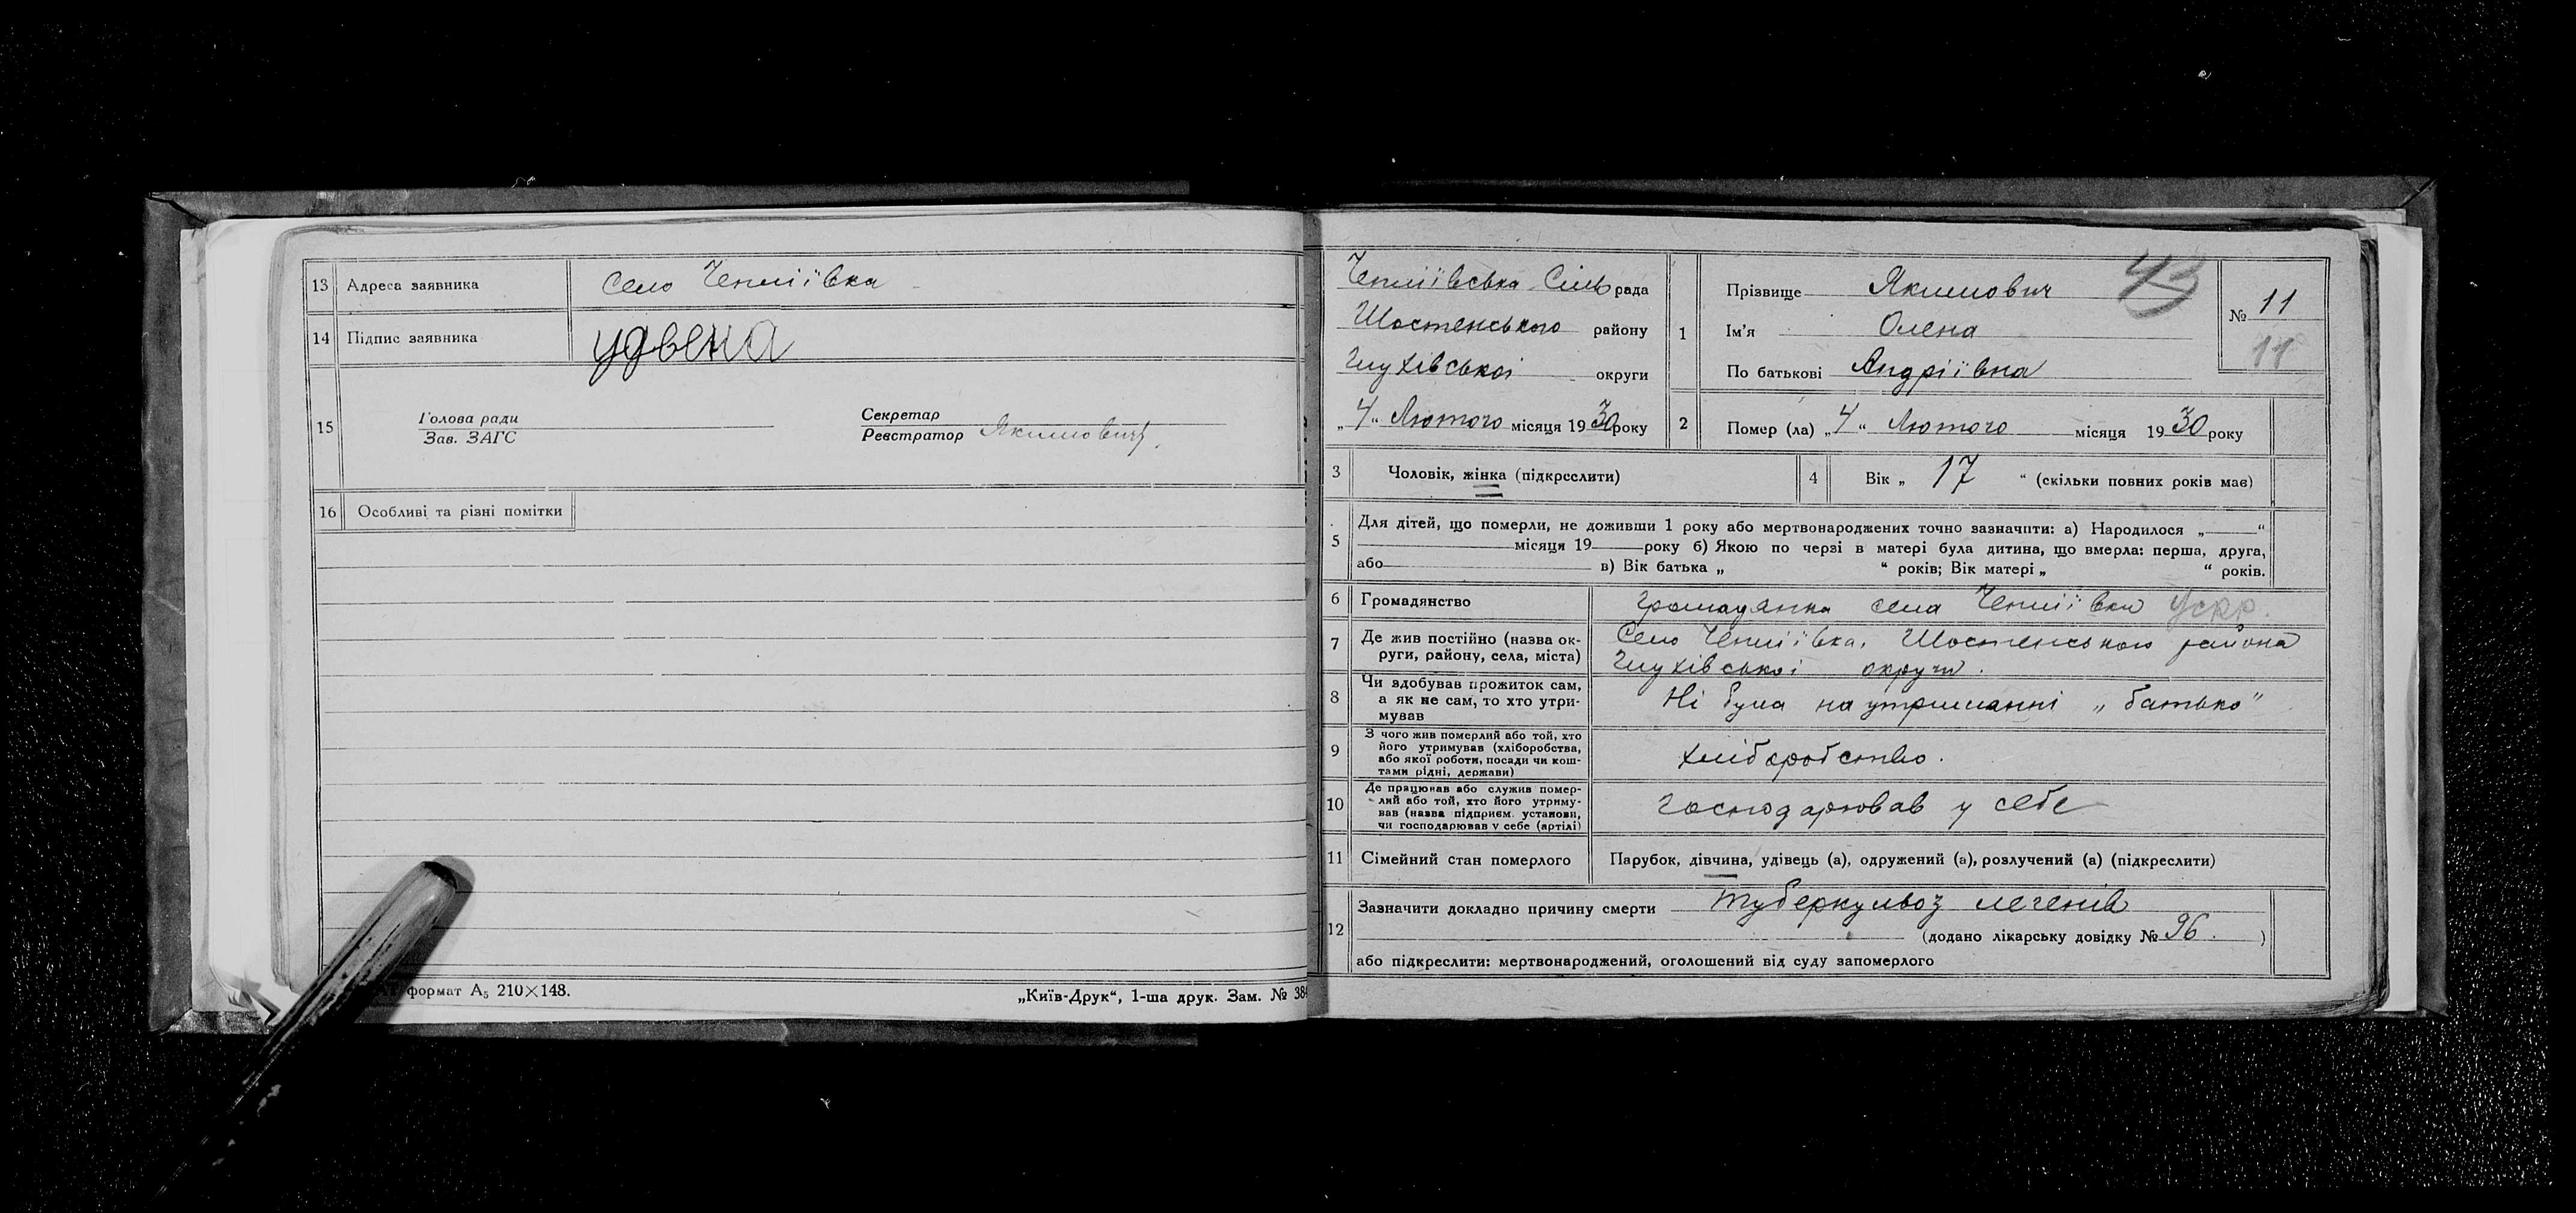 13 Адреса заявника село Чепліївка
14 Підпис заявника удвена
15 Голова ради
Зав. ЗАГС
Секретар
Реєстратор Якимович
16 Особливі та різні помітки
формат А5 210×148.
„Київ-Друк“, 1-ша друк. Зам. № 384
Чепліївська Сіль рада
Шостенського району
Глухівської округи
„4“ Лютого місяця 1930 року
43
№ 11
11
1 Прізвище Якимович
Ім'я Олена
По батькові Андріївна
2 Помер (ла) „4“ Лютого місяця 1930 року
3 Чоловік, жінка (підкреслити)
4 Вік „ 17 “ (скільки повних років має)
5 Для дітей, що померли, не доживши 1 року або мертвонароджених точно зазначити: а) Народилося „ “
місяця 19 року б) Якою по черзі в матері була дитина, що вмерла: перша, друга,
або в) Вік батька „ “ років; Вік матері „ “ років.
6 Громадянство громадянка села Чепліївки Уср р.
7 Де жив постійно (назва ок-
руги, району, села, міста)
Село Чепліївка, Шостенського района
Глухівської округи.
8 Чи здобував прожиток сам,
а як не сам, то хто утри-
мував
Ні була на утриманні „батько“
9 З чого жив померлий або той, хто
його утримував (хліборобства,
або якої роботи, посади чи кош-
тами рідні, держави)
хліборобство.
10 Де працював або служив помер-
лий або той, хто його утриму-
вав (назва підприєм. установи,
чи господарював у себе (артілі)
Господарював у себе
11 Сімейний стан померлого Парубок, дівчина, удівець (а), одружений (а), розлучений (а) (підкреслити)
12 Зазначити докладно причину смерти туберкульоз легенів
(додано лікарську довідку № 96. )
або підкреслити: мертвонароджений, оголошений від суду запомерлого